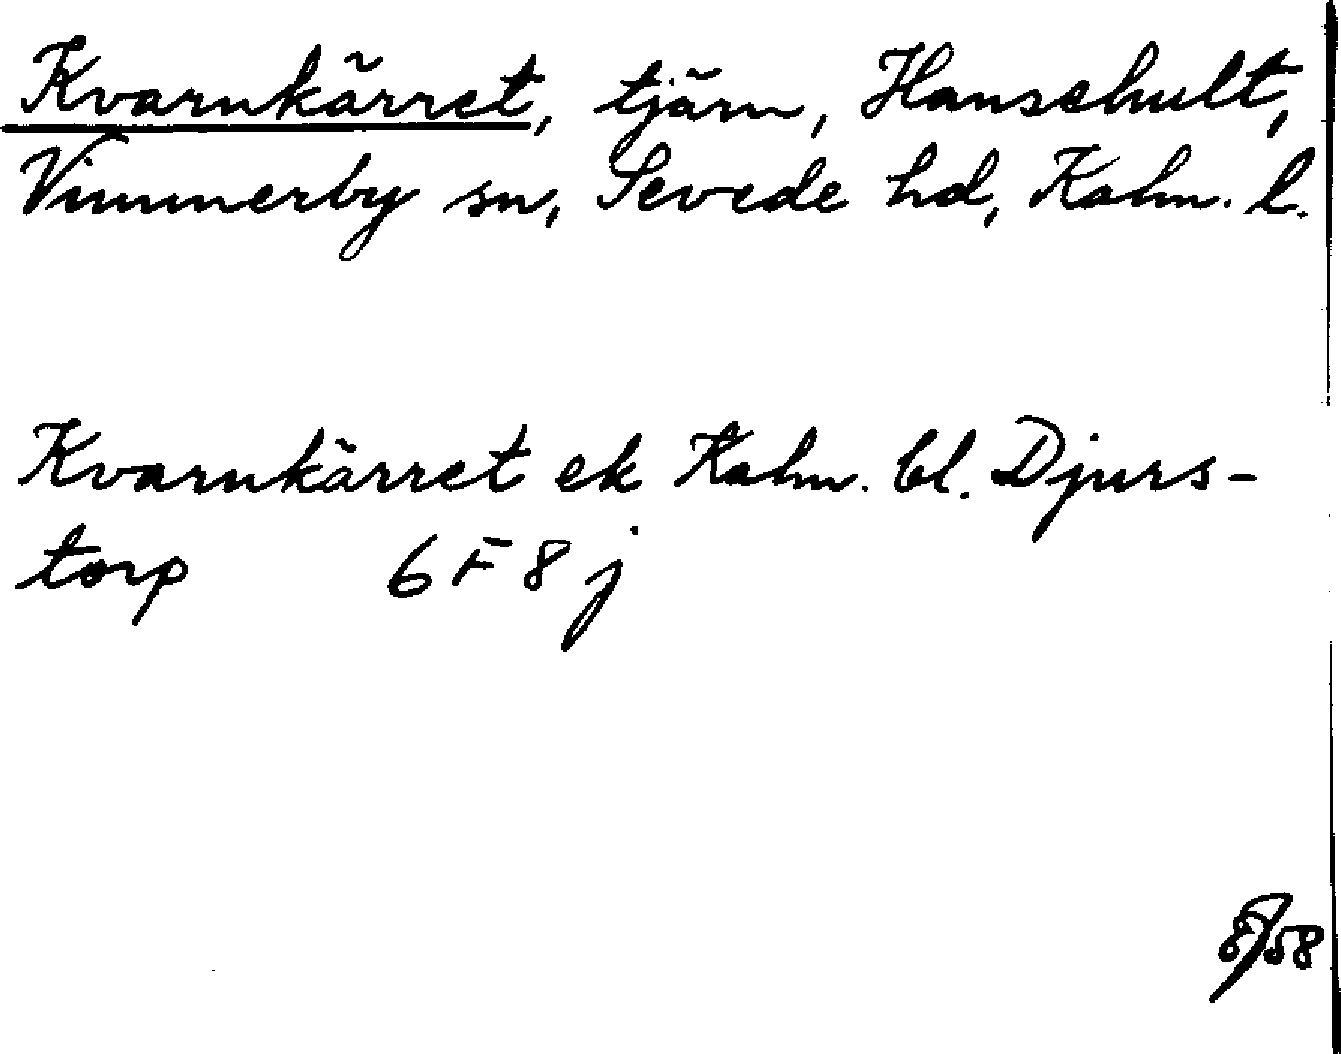 Kvarnkärret, tjärn, Hansehult,
Vimmerby sn, Sevede hd, Kalm. l.
Kvarnkärret ek Kalm. bl. Djurs-
torp 6 F 8 j